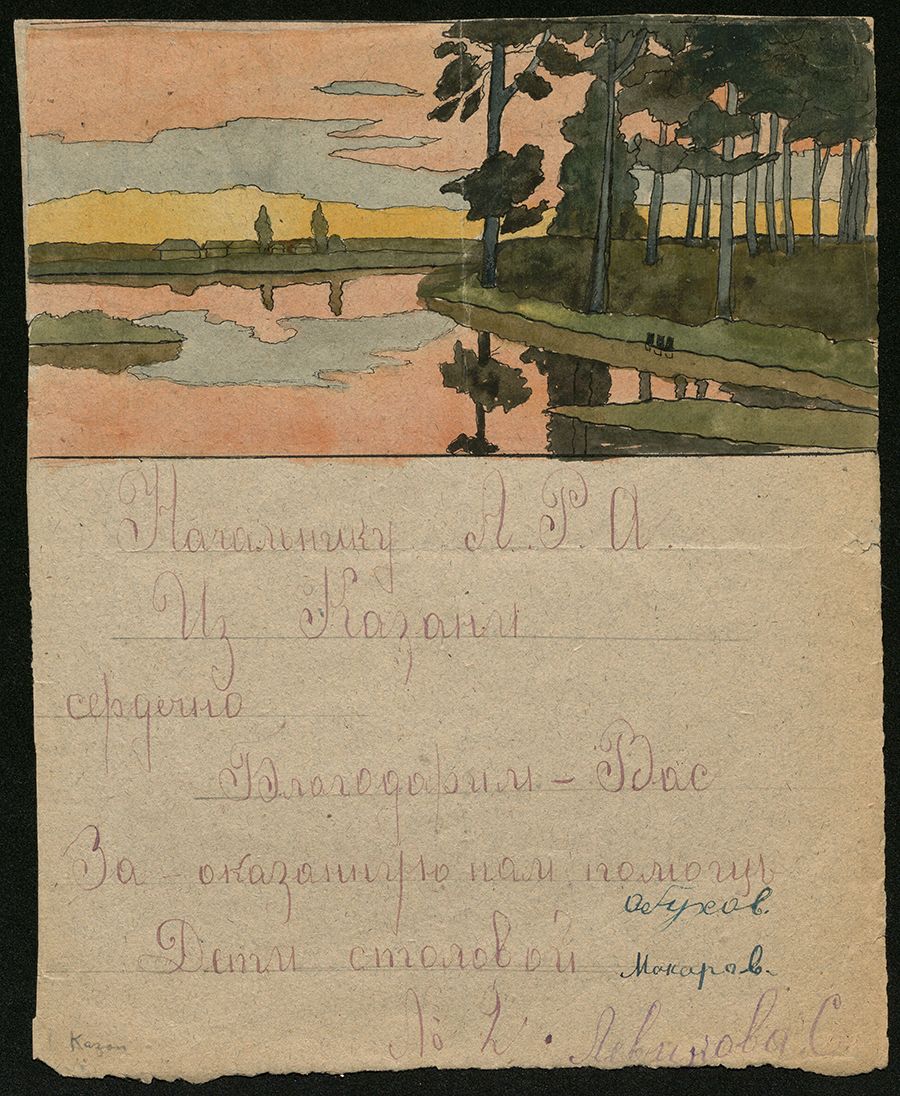 Начальнику А.Р.А.
Из Казани
сердечно
Благодарим – Вас
За – оказанную нам помощь
Обухов.
Дети столовой
Макаров.
№ 2.
С.
Казан